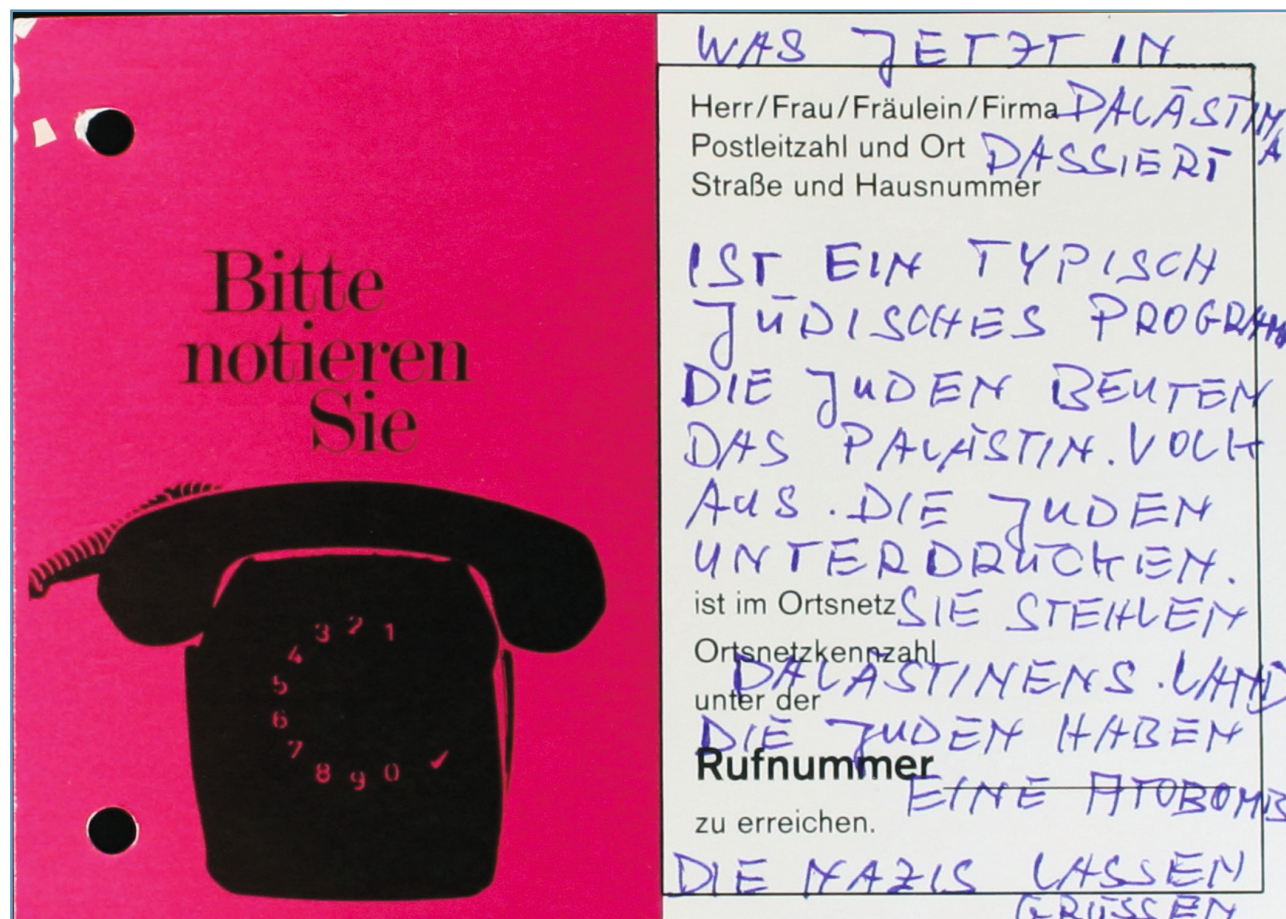 Bitte
notieren
Sie
3 2 1
4
5
6
7
8 9 0
WAS JETZT IN
Herr/Frau/Fräulein/Firma PALÄSTINA
Postleitzahl und Ort PASSIERT
Straße und Hausnummer
IST EIN TYPISCH
JÜDISCHES PROGRAMM
DIE JUDEN BEUTEN
DAS PALÄSTIN. VOLK
AUS. DIE JUDEN
UNTERDRÜCKEN.
ist im Ortsnetz SIE STEHLEN
Ortsnetzkennzahl
PALÄSTINENS. LAND
unter der
DIE JUDEN HABEN
Rufnummer
EINE ATOBOMB
zu erreichen.
DIE NAZIS LASSEN
GRÜSSEN